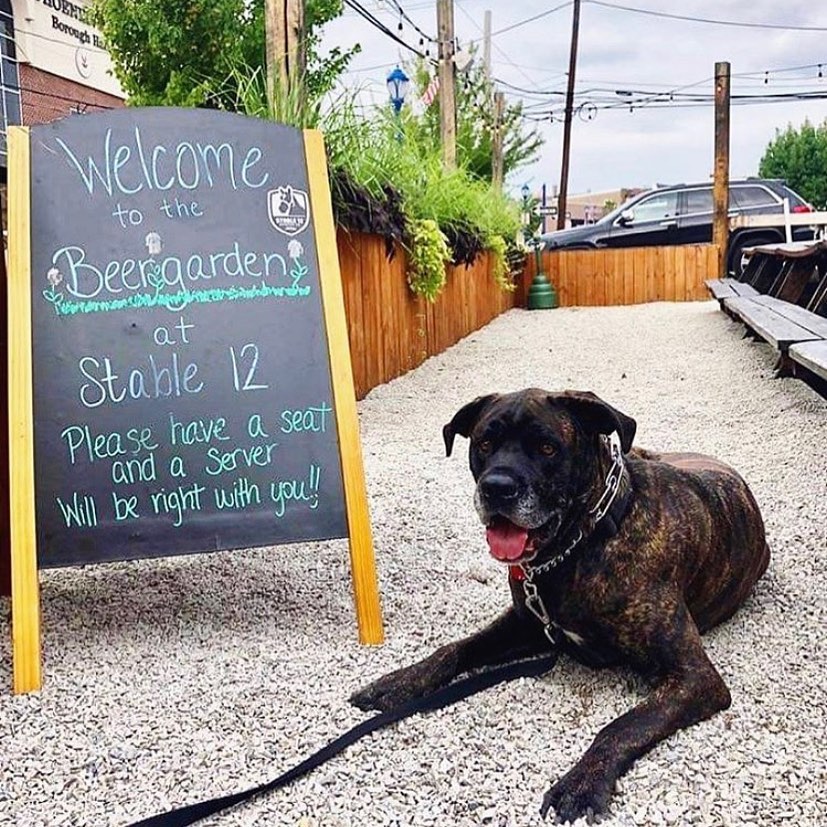 PHOENIX
Borough Hall
Welcome
to the
STABLE 12
Beergarden
at
Stable 12
Please have a seat
and a server
Will be right with you!!